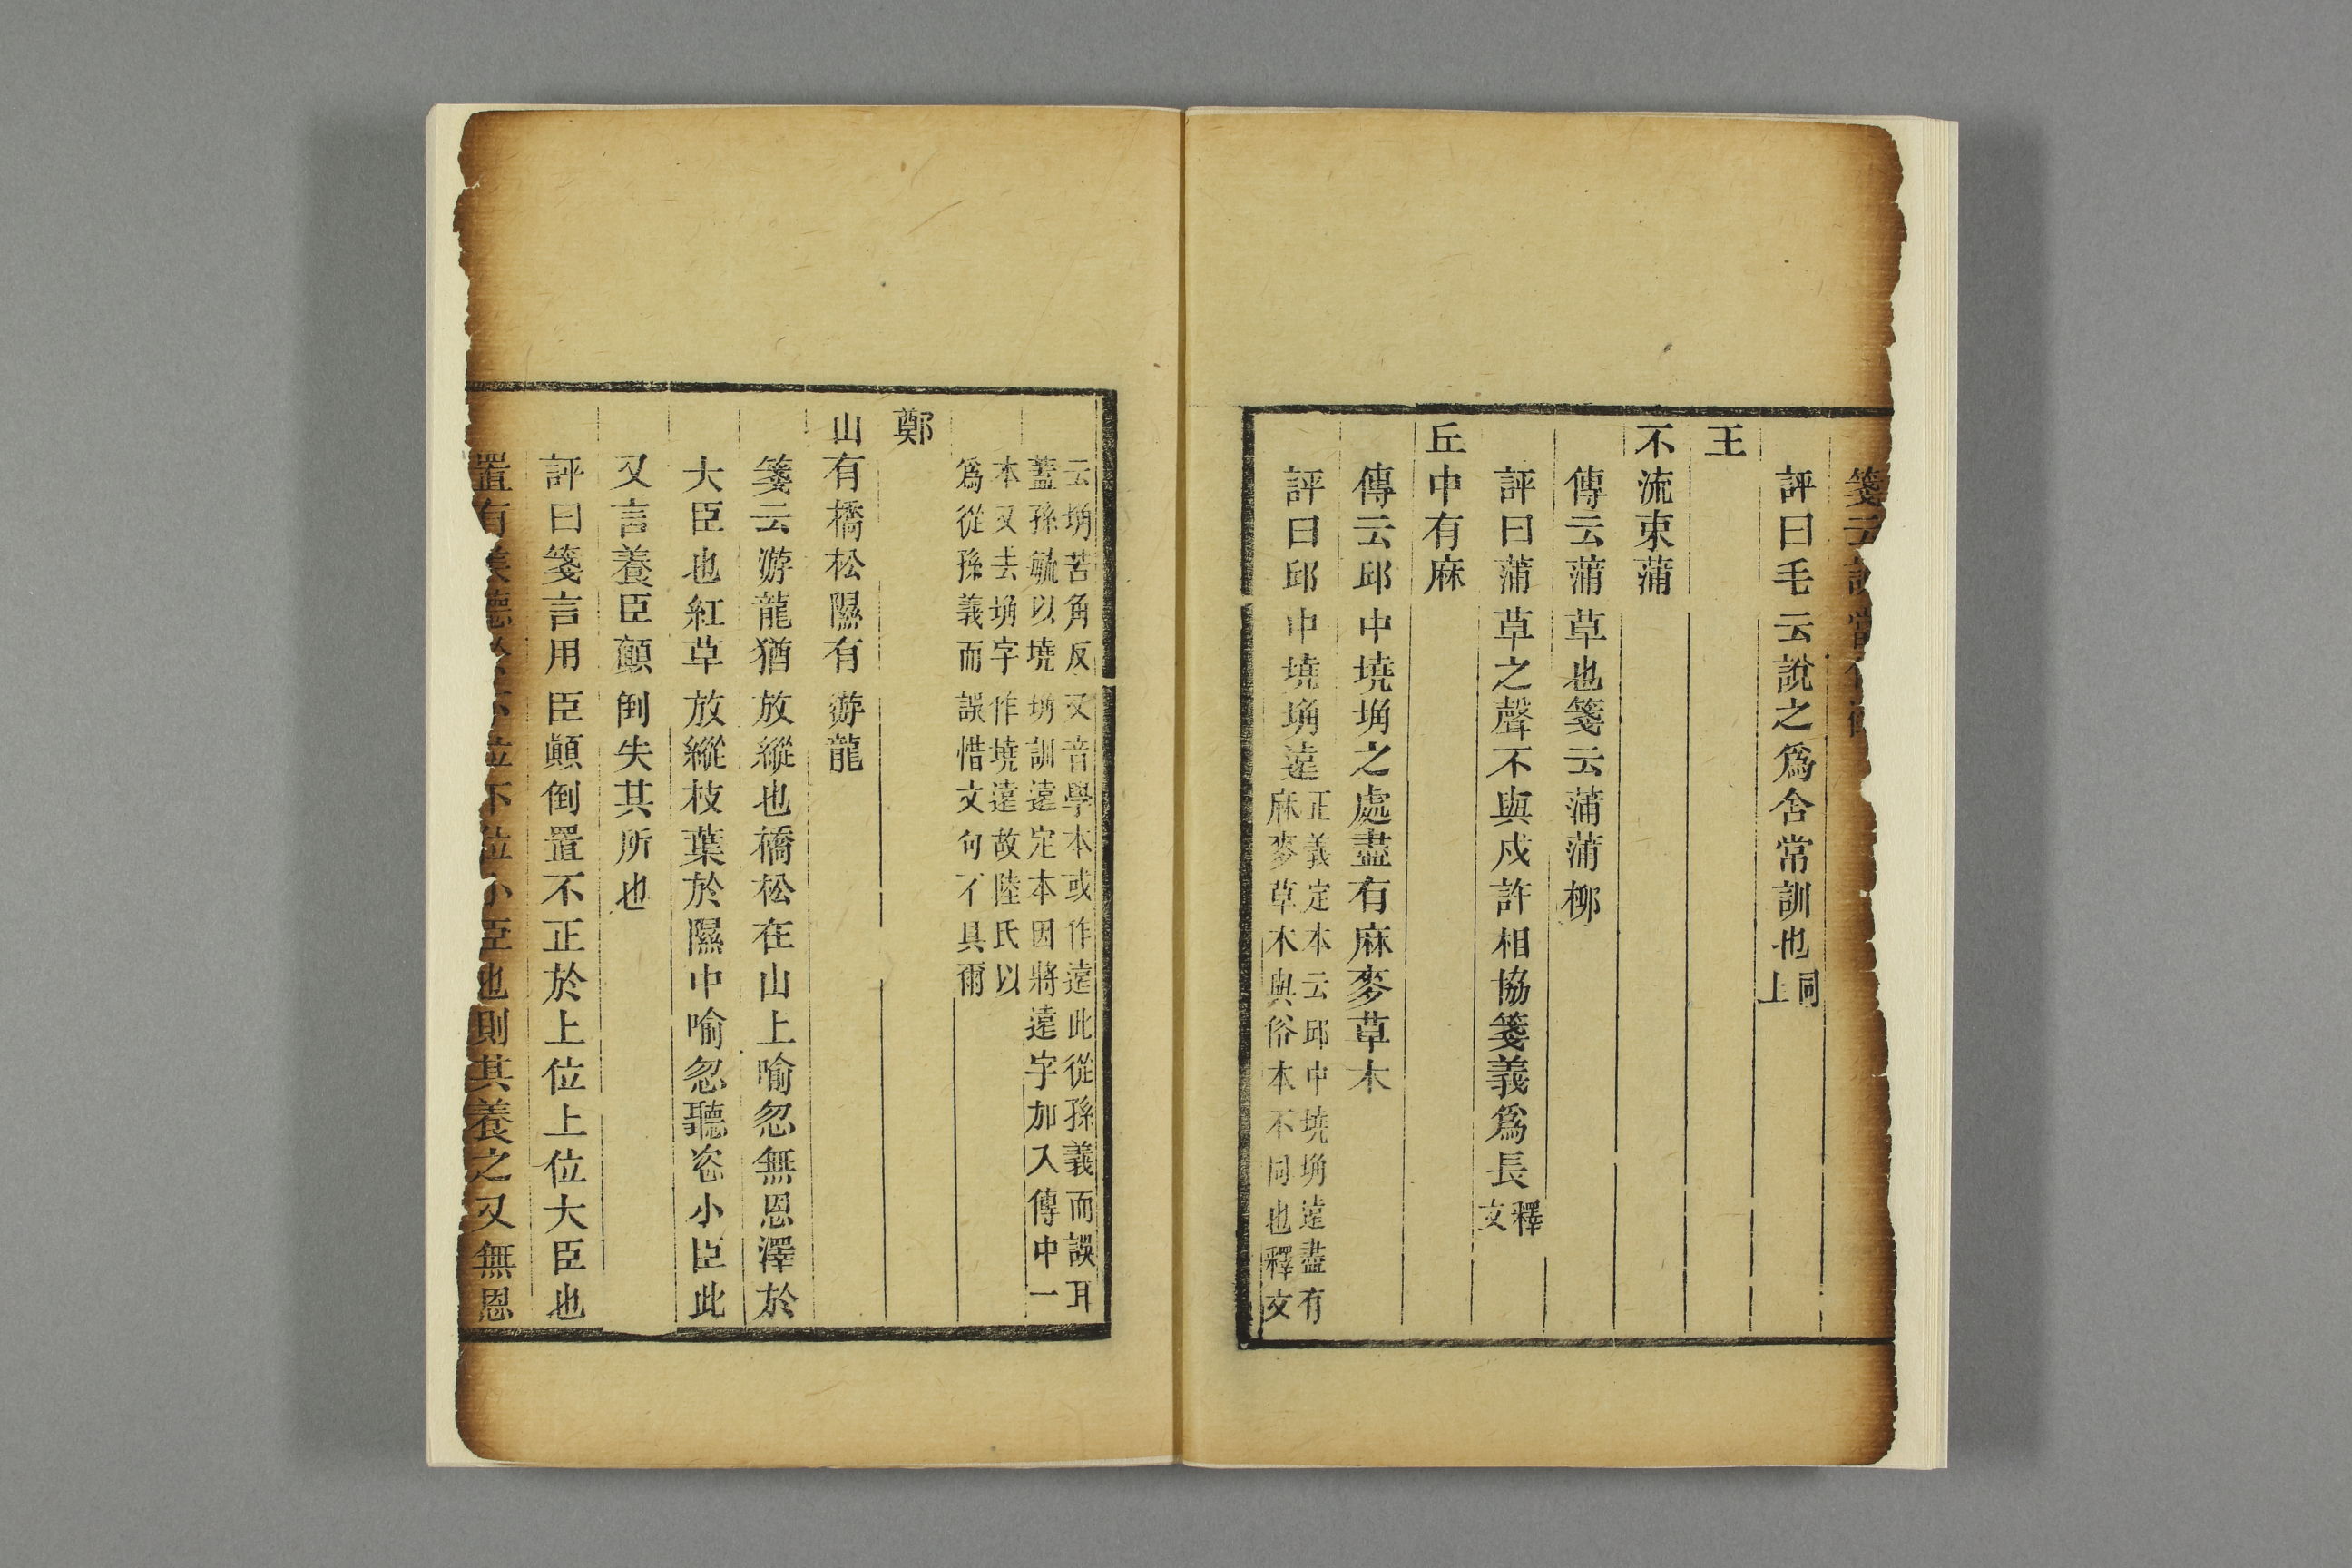 箋云說當作
評曰毛云說之爲舍常訓也同上
王
不流束蒲
傳云蒲草也箋云蒲蒲柳
評曰蒲草之聲不與戍許相協箋義爲長釋文
丘中有麻
傳云邱中墝埆之處盡有麻麥草木
評曰邱中墝埆遠正義定本云邱中墝埆遠盡有
麻麥草木與俗本不同也釋文
云埆苦角反又音學本或作遠此從孫義而誤耳
蓋孫毓以墝埆訓遠定本因將遠字加入傳中一
本又去埆字作墝遠故陸氏以
爲從孫義而誤惜文句不具爾
鄭
山有橋松隰有游龍
箋云游龍猶放縱也橋松在山上喻忽無恩澤於
大臣也紅草放縱枝葉於隰中喻忽聽恣小臣此
又言養臣顛倒失其所也
評曰箋言用臣顛倒置不正於上位上位大臣也
置有美德於下位下位小臣也則其養之又無恩